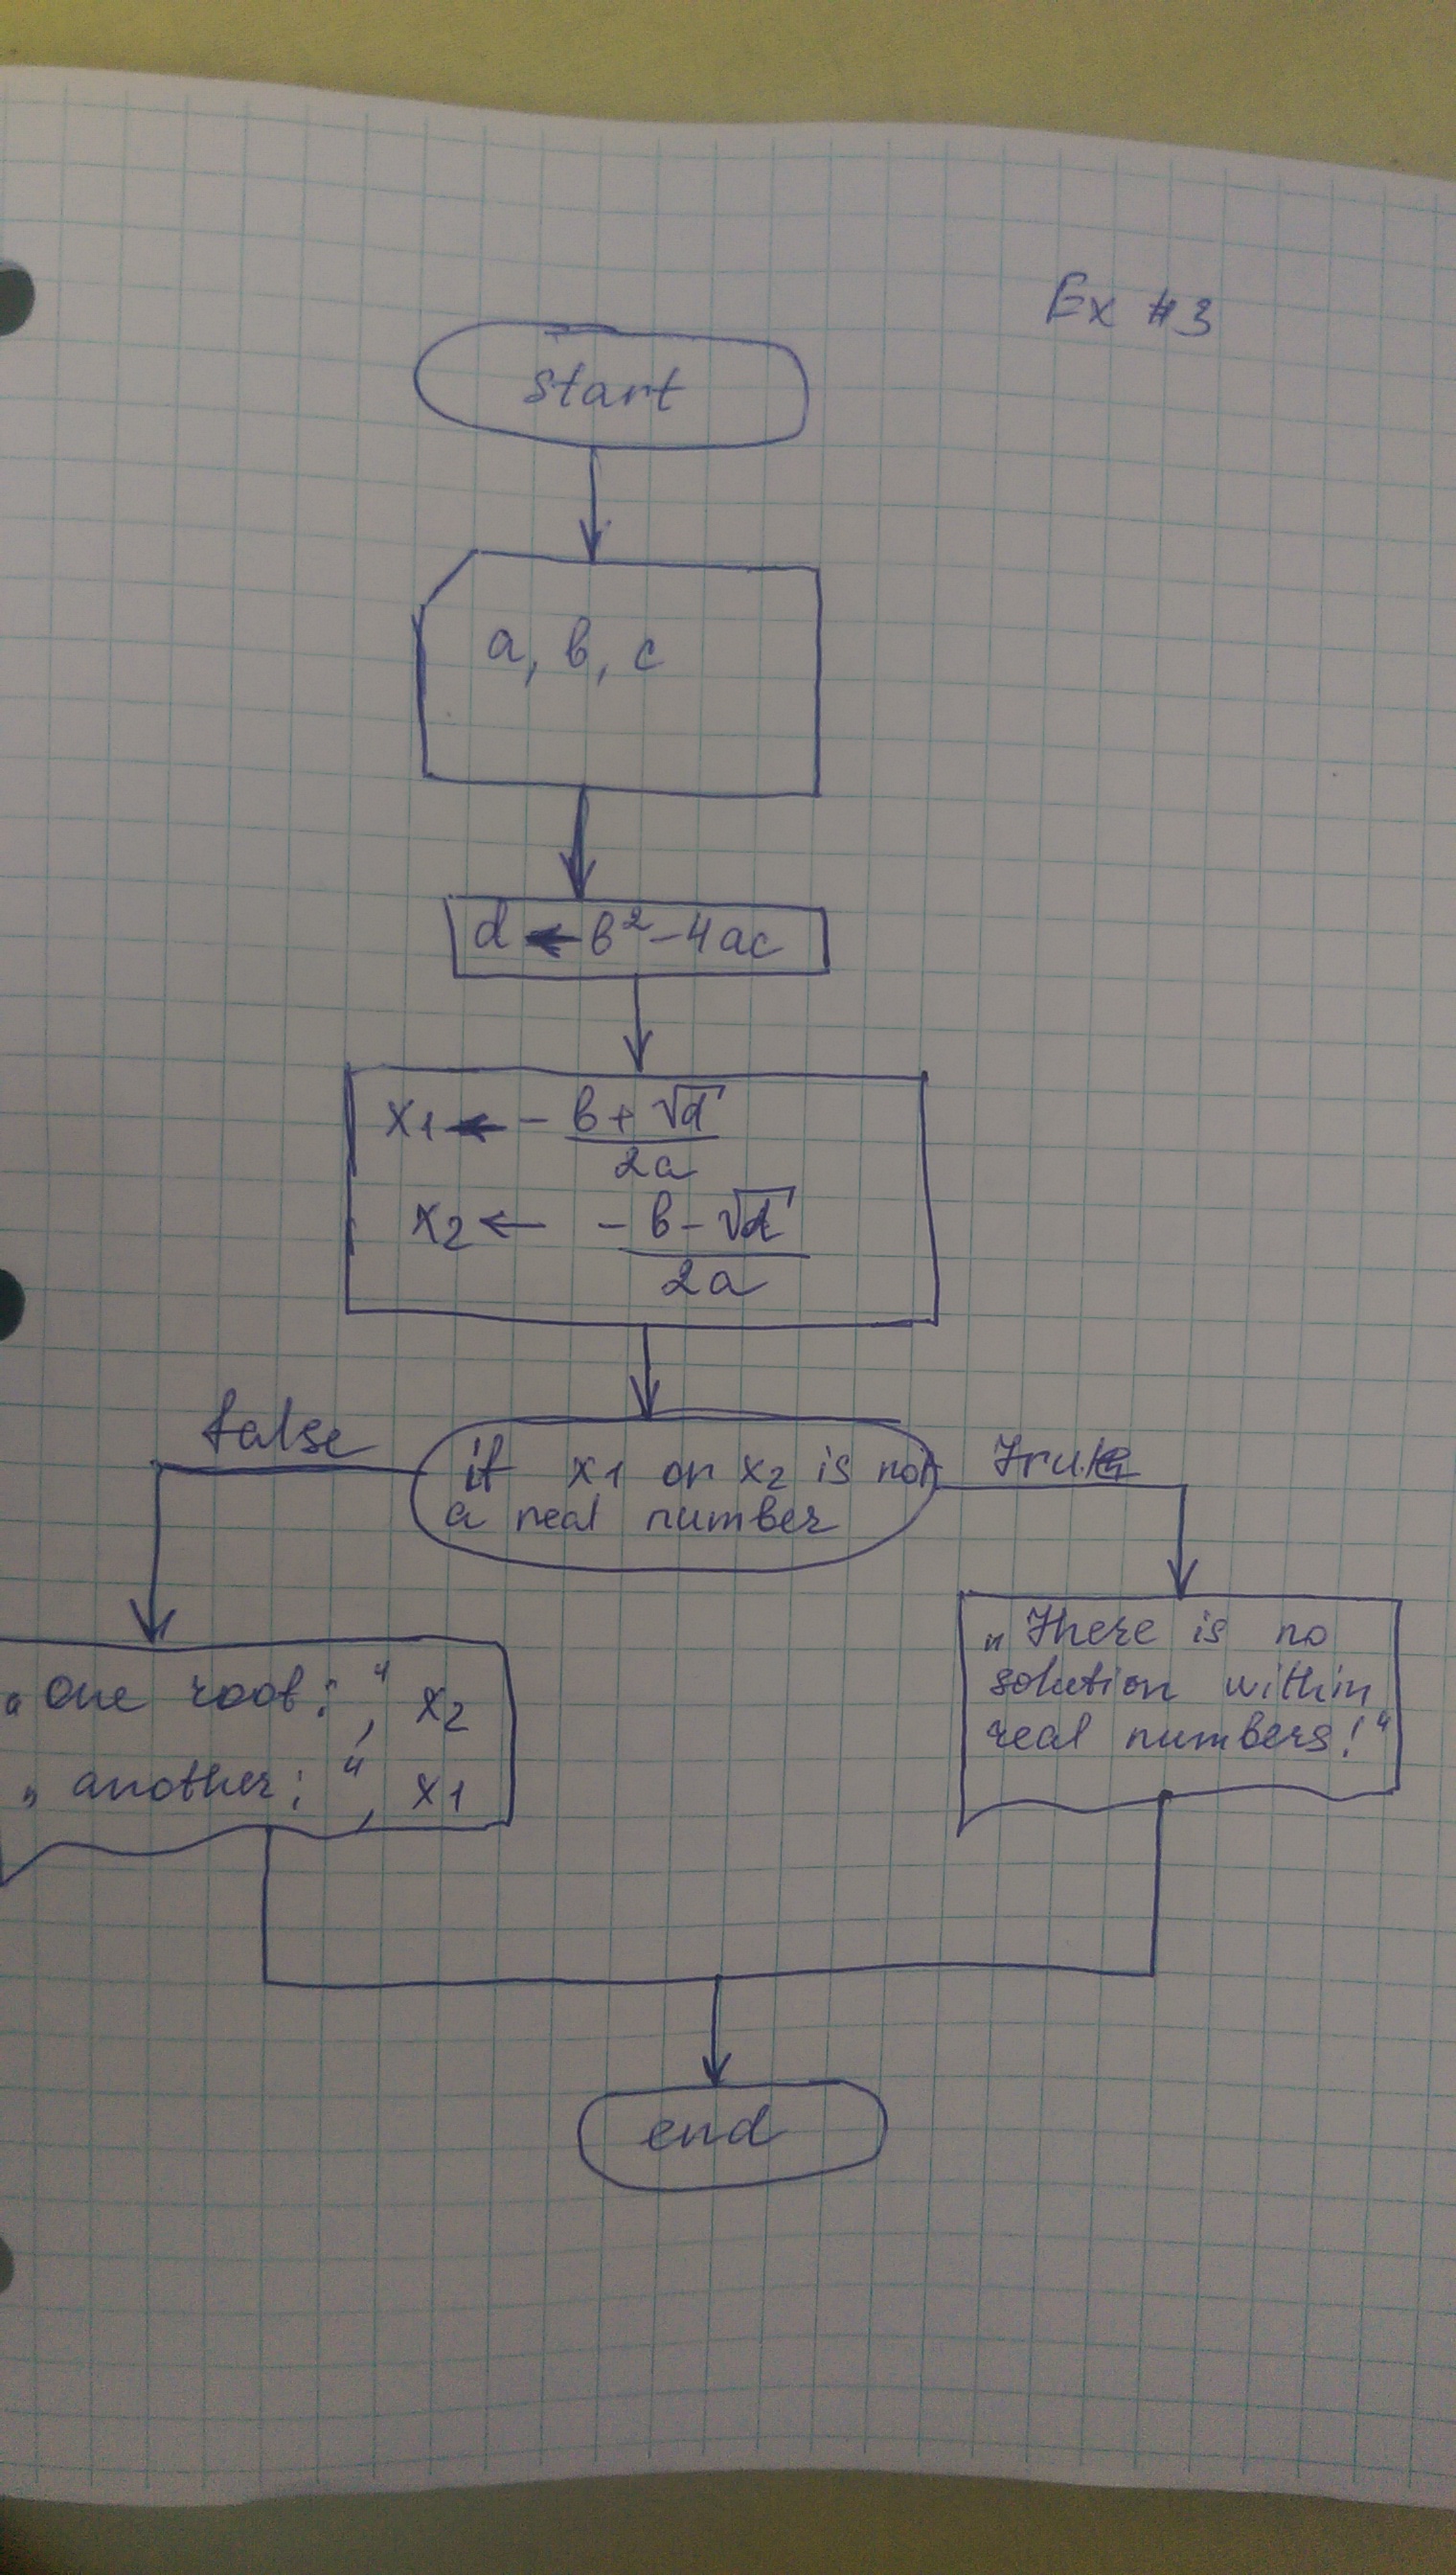 Ex #3
start
a, b, c
d ← b² - 4ac
x1 ← - b + √d
2a
x2 ← - b - √d
2a
if x1 or x2 is not
a real number
false
True
„one root:“, x2
„another:“, x1
„There is no
solution within
real numbers!“
end